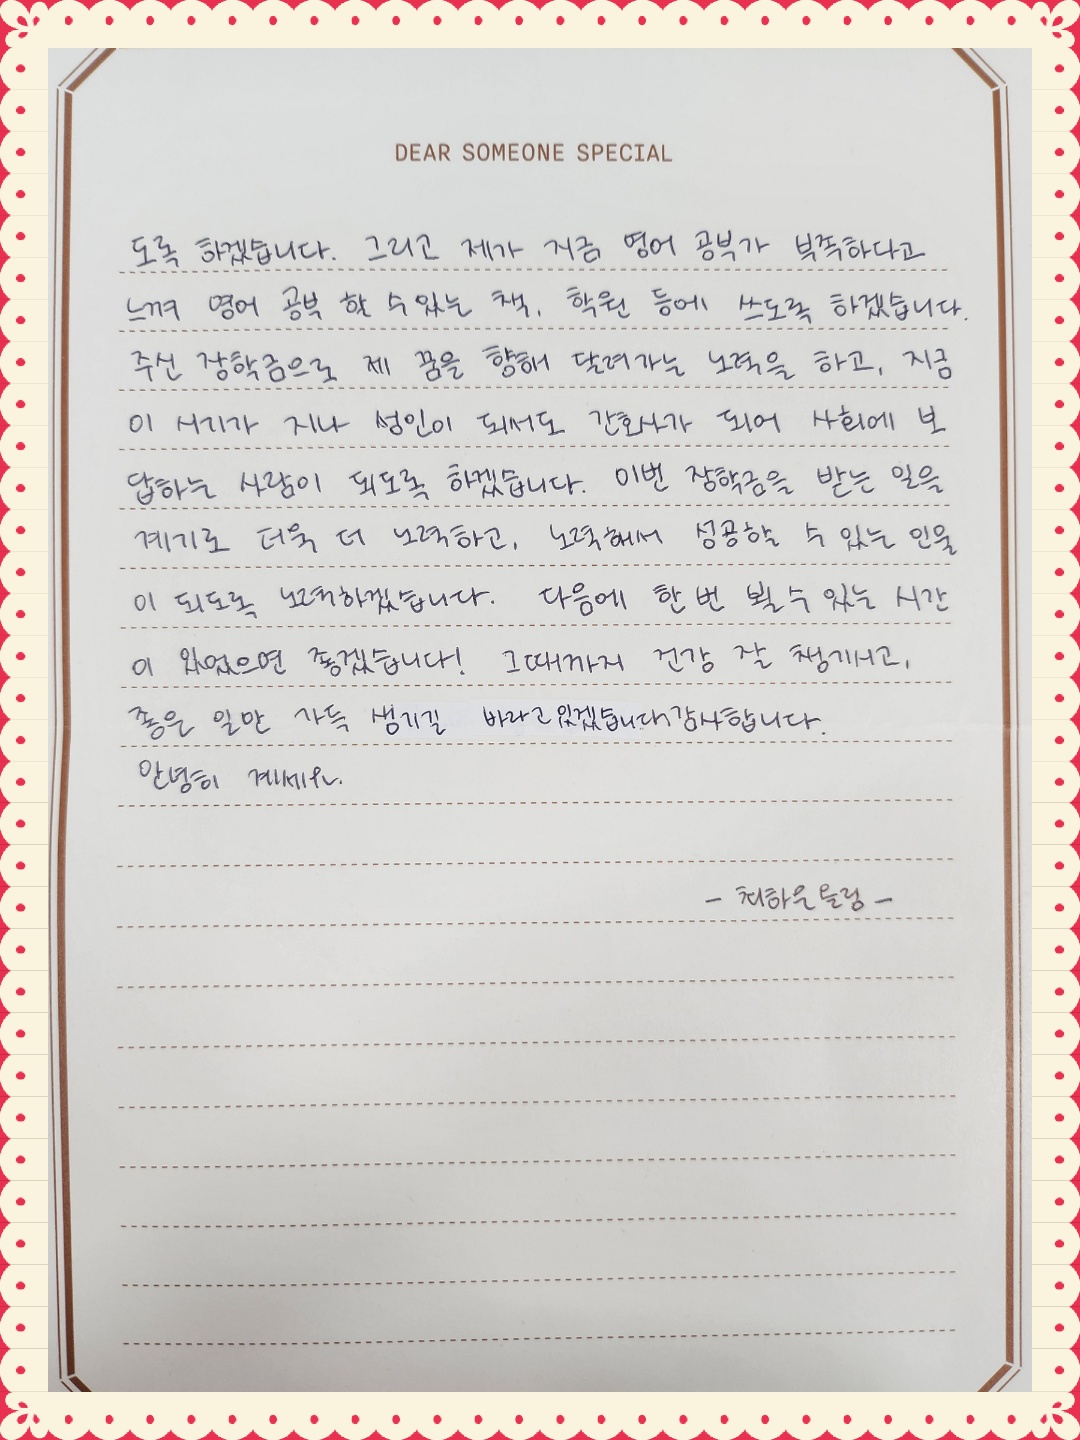 DEAR SOMEONE SPECIAL
도록 하겠습니다. 그리고 제가 지금 영어 공부가 부족하다고
느껴 영어 공부 할 수 있는 책, 학원 등에 쓰도록 하겠습니다.
주신 장학금으로 제 꿈을 향해 달려가는 노력을 하고, 지금
이 시기가 지나 성인이 되서도 간호사가 되어 사회에 보
답하는 사람이 되도록 하겠습니다. 이번 장학금을 받는 일을
계기로 더욱 더 노력하고, 노력해서 성공할 수 있는 인물
이 되도록 노력하겠습니다. 다음에 한 번 뵐 수 있는 시간
이 있었으면 좋겠습니다! 그때까지 건강 잘 챙기시고,
좋은 일만 가득 생기길 바라고 있겠습니다. 감사합니다.
안녕히 계세요.
하은 올림 -